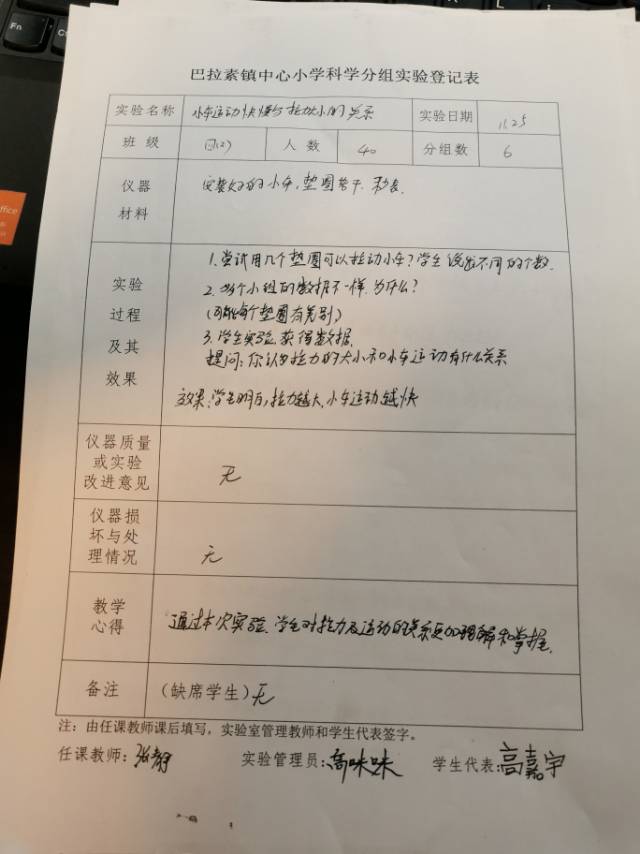 巴拉素镇中心小学科学分组实验登记表
实验名称 小车运动快慢与拉力大小的关系 实验日期 11.25
班 级 四(2) 人 数 40 分组数 6
仪器
材料
安装好的小车,垫圈若干、秒表.
实验
过程
及其
效果
1.尝试用几个垫圈可以拉动小车?学生说出不同的个数.
2.各个小组的数据不一样.为什么?
(可能每个垫圈有差别)
3.学生实验.获得数据.
提问:你认为拉力的大小和小车运动有什么关系
效果:学生明白,拉力越大,小车运动越快
仪器质量
或实验
改进意见
无
仪器损
坏与处
理情况
无
教学
心得
通过本次实验.学生对拉力及运动的关系更加理解和掌握.
备注 (缺席学生)无
注:由任课教师课后填写,实验室管理教师和学生代表签字。
任课教师: 实验管理员:高咪咪 学生代表:高嘉宇
Fn
ffice